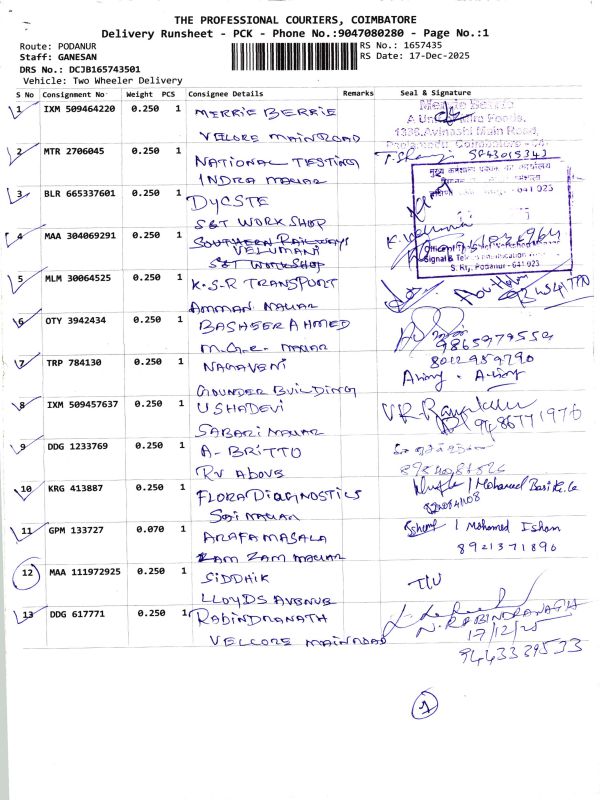 THE PROFESSIONAL COURIERS, COIMBATORE
Delivery Runsheet - PCK - Phone No.:9047080280 - Page No.:1
Route: PODANUR RS No.: 1657435
Staff: GANESAN RS Date: 17-Dec-2025
DRS No.: DCJB165743501
Vehicle: Two Wheeler Delivery
S No Consignment No Weight PCS Consignee Details Remarks Seal & Signature
1 IXM 509464220 0.250 1 MERRIE BERRIE
VELORE MAIN ROAD
Merrie Berrie
1336,Avinashi Main Road,
2 MTR 2706045 0.250 1 NATIONAL TESTING 9843015343
INDRA NAGAR
3 BLR 665337601 0.250 1 DYCSTE
S&T WORK SHOP
4 MAA 304069291 0.250 1 SOUTHERN RAILWAYS
VELUMANI
S&T WORKSHOP
S. Rly, Podanur - 641 023
5 MLM 30064525 0.250 1 K.S.R TRANSPORT
AMMAN NAGAR
6 OTY 3942434 0.250 1 BASHEER AHMED
9865979559
M.G.R. NAGAR
8012959790
7 TRP 784130 0.250 1 NAGAVENI
GOUNDER BUILDING
8 IXM 509457637 0.250 1 USHADEVI
9486771976
SABARI NAGAR
9 DDG 1233769 0.250 1 A- BRITTO
RV ABOVE
10 KRG 413887 0.250 1 FLORA DIAGNOSTICS
SRI NAGAR
11 GPM 133727 0.070 1 ARAFA MASALA / Mohamed Isham
8921371896
ZAM ZAM NAGAR
12 MAA 111972925 0.250 1 SIDDHIK
LLOYDS AVENUE
13 DDG 617771 0.250 1 RABINDRANATH
N. RABINDRANATH
17/12/25
VELCORE MAIN ROAD
9443339533
1